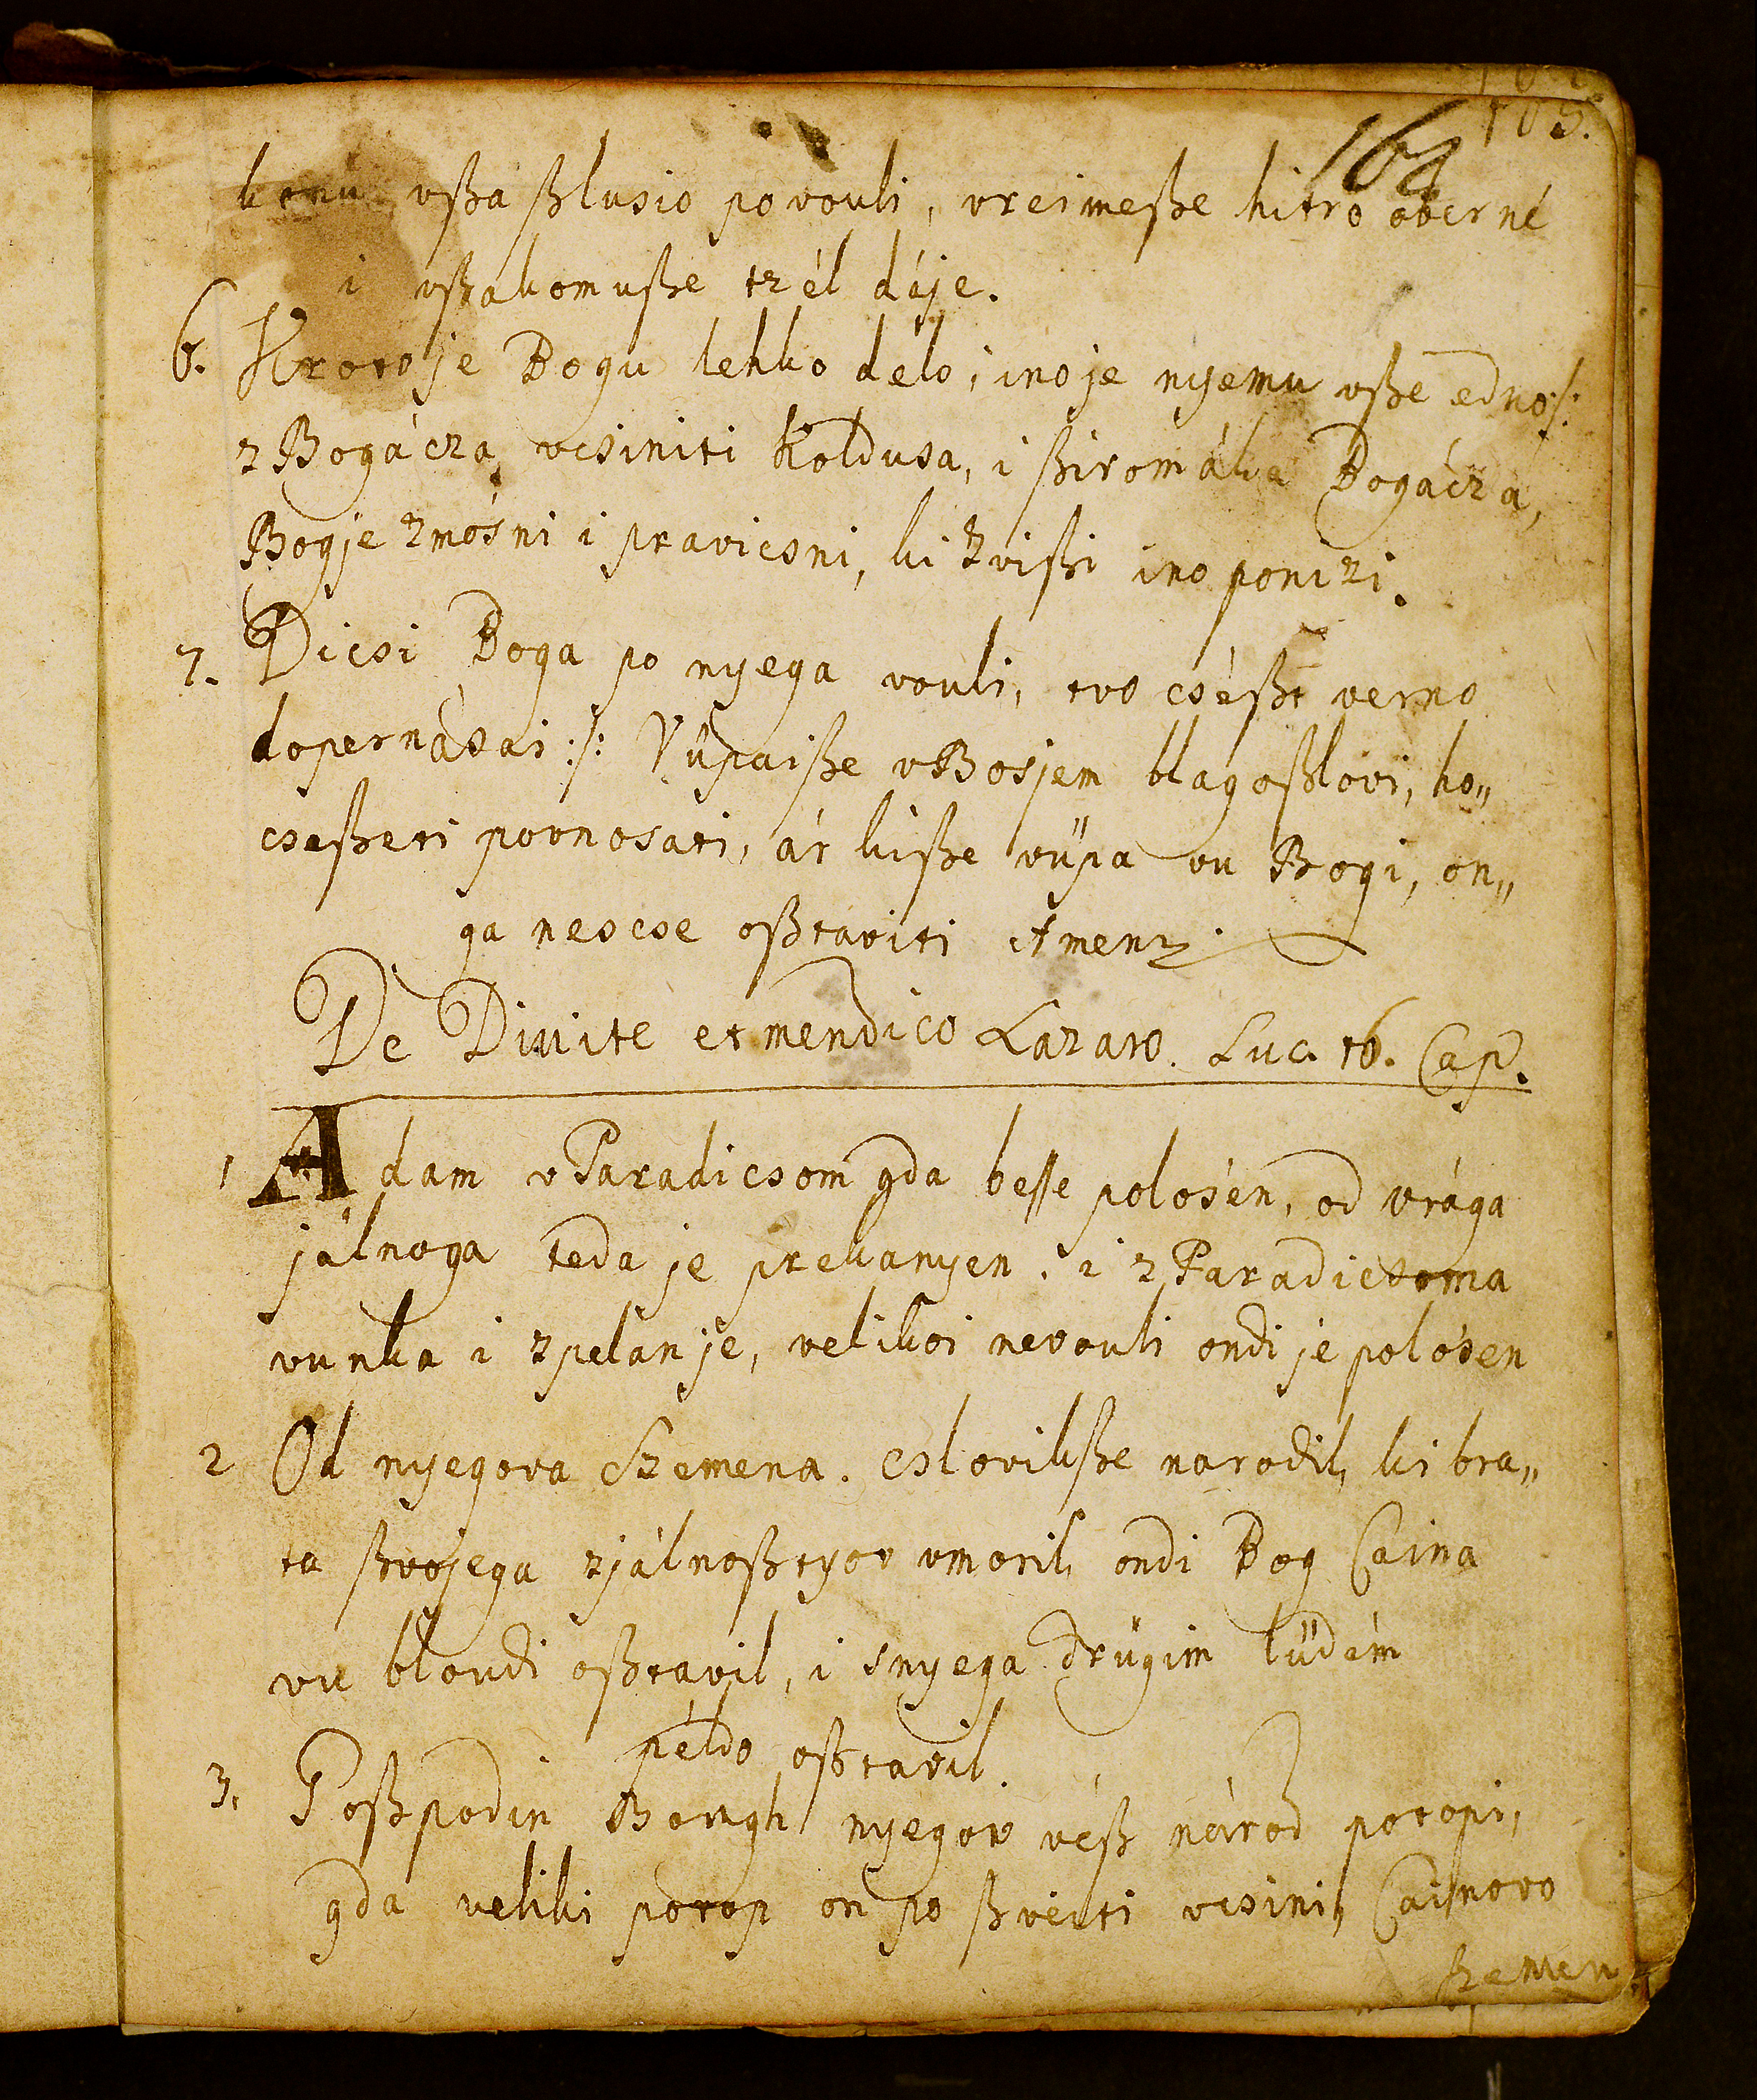 103.
164
komu vßa ßlusio povouli, vreimeße hitro oberné
i vßakomuße tzél dáje.
6. Kroto je Bogu lehko délo, ino je nyemu vße edno :/:
z Bogácza vcsiniti Koldusa, i ßiromáka Bogáczá,
Bog je zmósni i pravicsni, ki zvißi ino ponizi.
7. Dicsi Boga po nyega vouli, tvo cséßt verno
dopernásai :/: Vüpaiße v Bosjem blagoßlovi, ho„
cseßeti povnosati, ár kiße vüpa vu Bogi, on„
ga neocse oßtaviti Amen.
De Divite et mendico Lazaro. Luc. 16. Cap.
1 Adam v Paradicsom gda beße polosén, od vrága
jálnoga teda je prekanyen. i z Paradicsoma
vunka i zpelan je, velikoi nevouli ondi je polósen
2 Od nyegova Szemena. cslovikße narodil, ki bra„
ta ßvojega zjálnoßtyov vmoril, ondi Bog Caina
vu bloudi oßtavil, i snyega drügim lüdém
példo oßtavil.
3. Goßpodin Bough nyegov veß národ potopi,
gda veliki potop on po ßveiti vcsini, Cainovo
szemen